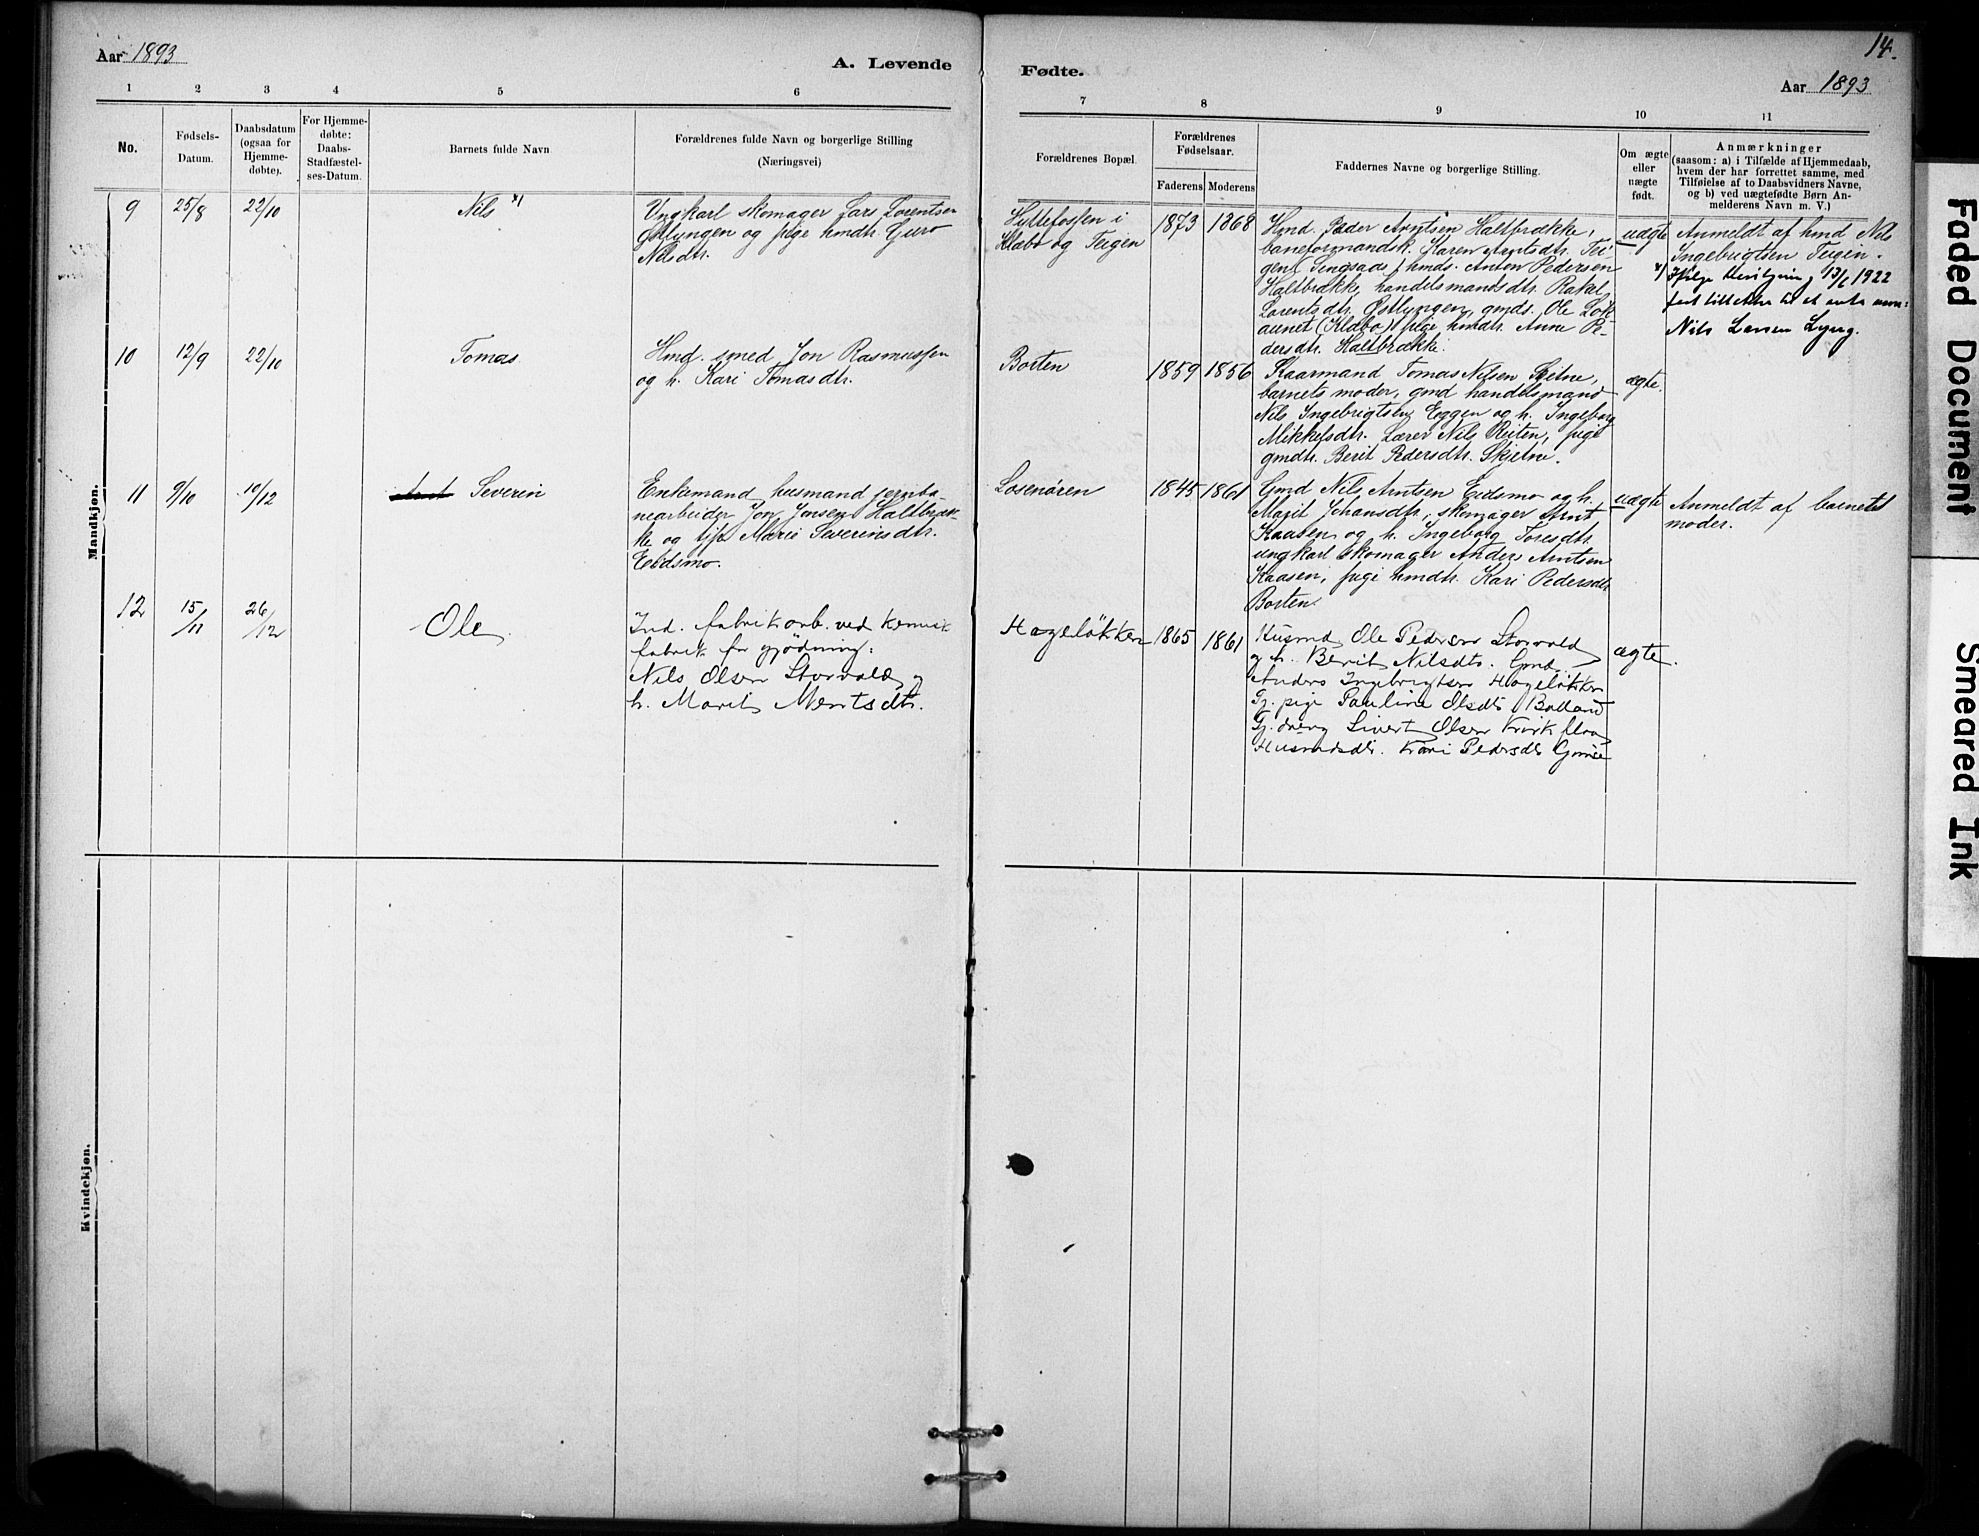 Aar 1893
A. Levende
Fødte.
14.
Aar 1893
1 2 3 4 5 6 7 8 9 10 11
No.
Fødsels-
Datum.
Daabsdatum
(ogsaa for
Hjemme-
døbte).
For Hjemme-
døbte:
Daabs-
Stadfæstel-
ses-Datum.
Barnets fulde Navn
Forældrenes fulde Navn og borgerlige Stilling
(Næringsvei)
Forældrenes Bopæl.
Forældrenes
Fødselsaar.
Faderens Moderens
Faddernes Navne og borgerlige Stilling.
Om ægte
eller
uægte
født.
Anmærkninger
(saasom: a) i Tilfælde af Hjemmedaab,
hvem der har forrettet samme, med
Tilføielse af to Daabsvidners Navne,
og b) ved uægtefødte Børn An-
melderens Navn m. V.)
Mandkjøn.
9
25/8
22/10
Nils x)
Ungkarl skomager Lars Lorentsen
Østlyngen og pige hmdtr. Guro
Nilsdtr.
Hyttefossen i
Klæbo og Teigen
1873 1868
Hmd. Peder Arntsen Haltbrække,
baneformandsk. Karen Arntsdtr. Tei-
gen (Singsaas) hmds. Anton Pedersen
Haltbrække, handelsmandsdtr. Rakel
Lorentsdtr. Østlyngen, gmds. Ole Løk-
aunet (Klæbo) pige hmdtr. Anne Pe-
dersdtr. Haltbrække.
uægte
Anmeldt af hmd Nils
Ingebrigtsen Teigen.
x) Ifølge 13/6 1922
Nils Larsen Lyng.
10
12/9
22/10
Tomas
Hmd. smed Jon Rasmussen
og h. Kari Tomasdtr.
Borten
1859 1856
Kaarmand Tomas Nilsen Skjetne,
barnets moder, gmd handelsmand
Nils Ingebrigtsen Eggen og h. Ingeborg
Mikkelsdtr. Lærer Nils Reiten, pige
gmdtr. Berit Pedersdtr. Skjetne.
ægte.
11
9/10
10/12
Severin
Enkemand, husmand jernba-
nearbeider Jon Jonsen Haltbræk-
ke og tjp. Marie Severinsdtr.
Eidsmo.
Losenøren
1845 1861
Gmd Nils Arntsen Eidsmo og h.
Marit Johansdtr, skomager Arnt
Kaasen og h. Ingeborg Toresdtr.
ungkarl skomager Anders Arntsen
Kaasen, pige hmdtr. Kari Pedersdtr
Borten.
uægte
Anmeldt af barnets
moder.
12
15/11
26/12
Ole
Ind. fabrikarb. ved kemisk
fabrik for gjødning:
Nils Olsen Storvold og
h. Marit Mentsdtr.
Hageløkken
1865 1861
Husmd Ole Pedersen Storvold
og h. Berit Nilsdtr. Gmd
Anders Ingebrigtsen Hageløkken
Tj. pige Pauline Olsdtr Volland
Tj. dreng Sivert Olsen Kvikflaa
Husmdsdtr. Kari Pedersdtr
ægte.
Kvindekjøn.
Faded Document
Smeared Ink